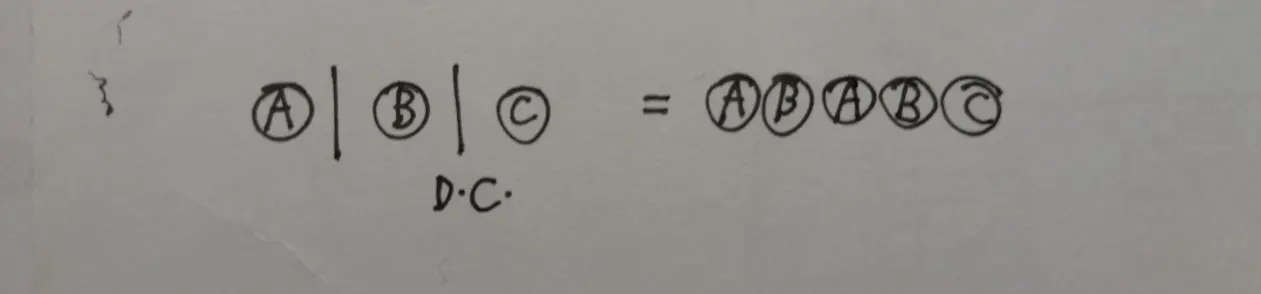 Ⓐ | Ⓑ | Ⓒ = Ⓐ Ⓑ Ⓐ Ⓑ Ⓒ
D.C.